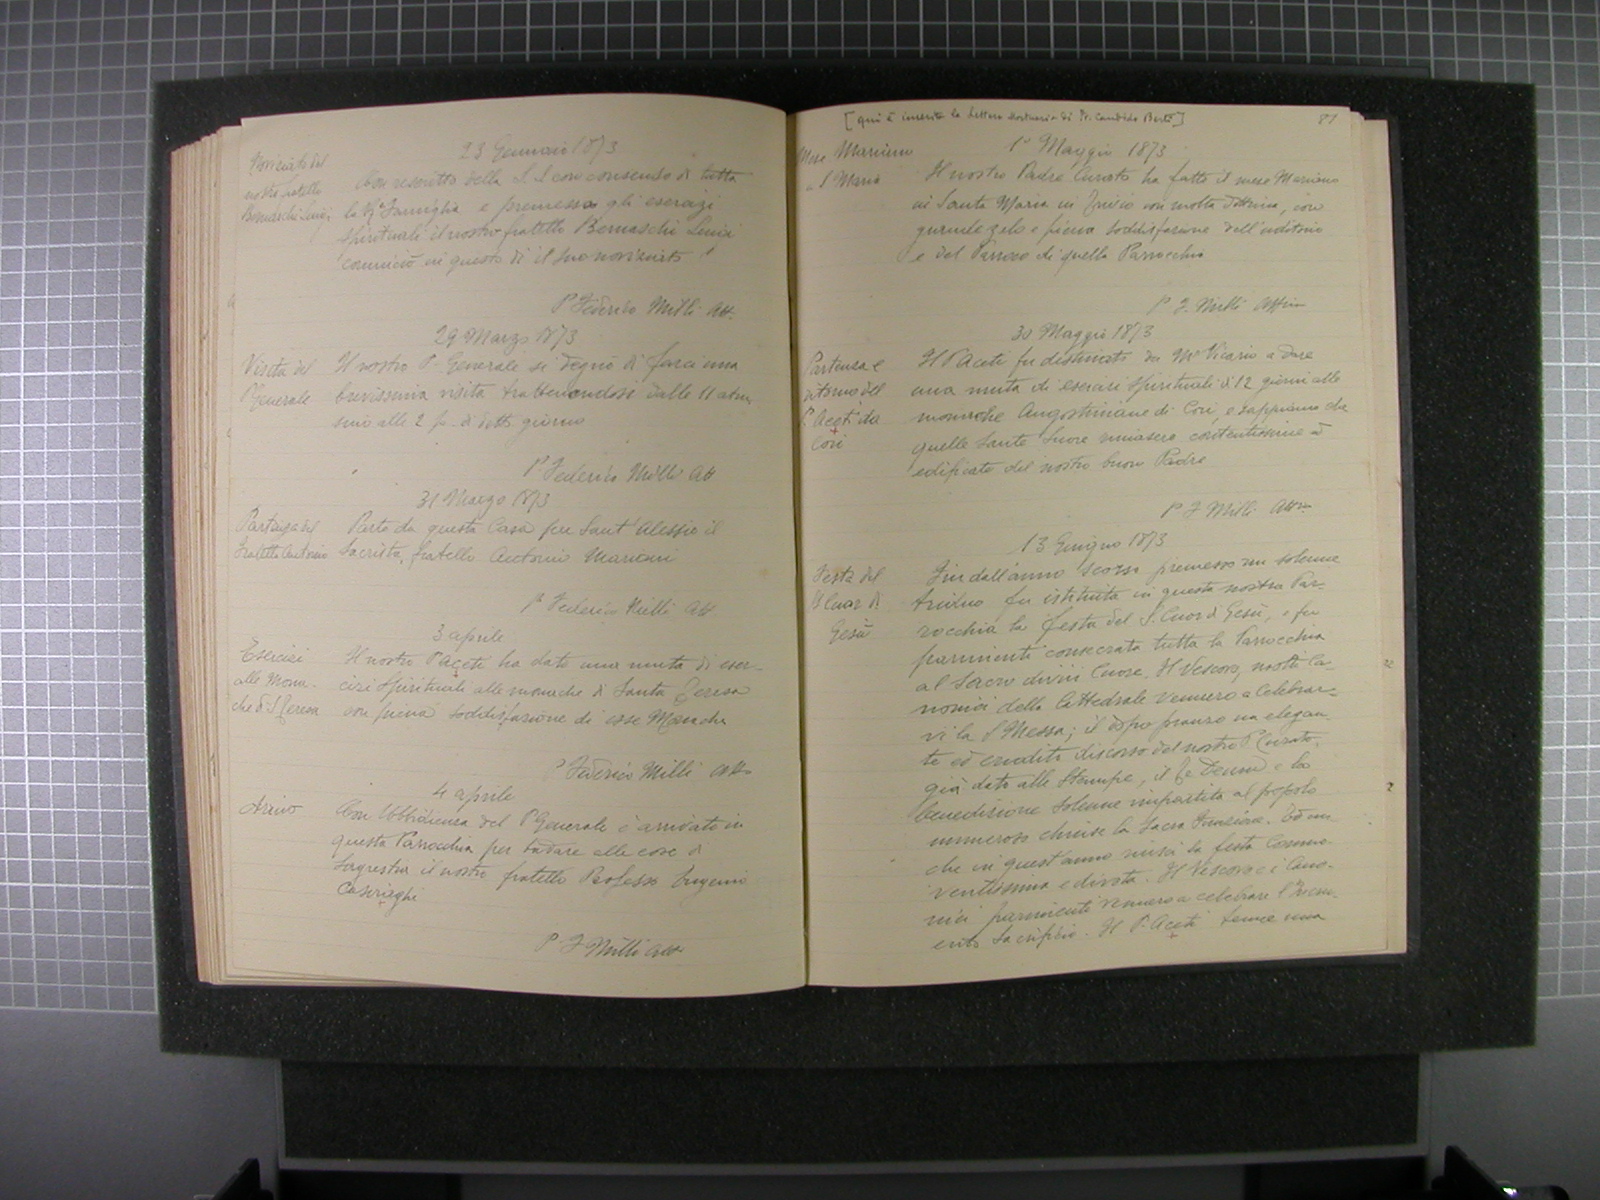 23 Gennaio 1873
Noviziato del
nostro fratello
Bernaschi Luigi
Con rescritto della S. S. con consenso di tutta
la Rda Famiglia e premessi gli esercizi
spirituali il nostro fratello Bernaschi Luigi
cominciò in questo dì il suo noviziato
P. Federico Milli Att.
29 Marzo 1873
Visita del
P. Generale
Il nostro P. Generale si degnò di farci una
brevissima visita trattenendosi dalle 11 atm.
sino alle 2 p. di detto giorno
P. Federico Milli Att
31 Marzo 1873
Partenza del
fratello Antonio
Parte da questa Casa per Sant'Alessio il
Sacrista, fratello Antonio Marioni
P. Federico Milli Att
3 aprile
Esercizi
alle Mona-
che di S. Teresa
Il nostro P. Aceti ha dato una muta di eser-
cizi spirituali alle monache di Santa Teresa
con piena soddisfazione di esse Monache
P. Federico Milli Att
4 aprile
Arrivo
Con Ubbidienza del P. Generale è arrivato in
questa Parrocchia per badare alle cose di
Sagrestia il nostro fratello Professo Eugenio
Casiraghi
P. F. Milli Att
[qui è inserita la lettera mortuaria di P. Candido Bertò] 81
1° Maggio 1873
Mese Mariano
a S. Maria
Il nostro Padre Curato ha fatto il mese Mariano
in Santa Maria in con molta dottrina, con
grande zelo e piena soddisfazione dell'uditorio
e del Parroco di quella Parrocchia
P. F. Milli Attrio
30 Maggio 1873
Partenza e
ritorno del
P. Aceti da
Cori
Il P. Aceti fu destinato da Mr Vicario a dare
una muta di esercizi spirituali di 12 giorni alle
monache Agostiniane di Cori, e sappiamo che
quelle Sante Suore rimasero contentissime ed
edificate del nostro buon Padre
P. F. Milli Attrio
13 Giugno 1873
Festa del
S. Cuor di
Gesù
Fin dall'anno scorso premesso un solenne
triduo fu istituita in questa nostra Par-
rocchia la festa del S. Cuor di Gesù, e fu
parimenti consecrata tutta la Parrocchia
al Sacro divin Cuore. Il Vescovo, molti Ca-
nonici della Cattedrale vennero a celebrar-
vi la S. Messa; il dopo pranzo un elegan-
te ed erudito discorso del nostro P. Curato,
già dato alle stampe, il Te Deum e la
benedizione solenne impartita al popolo
numeroso chiuse la Sacra Funzione. Ed an-
che in quest'anno riuscì la festa commo-
ventissima e divota. Il Vescovo e i Cano-
nici parimenti vennero a celebrare l'Incru-
ento Sacrificio. Il P. Aceti tenne una